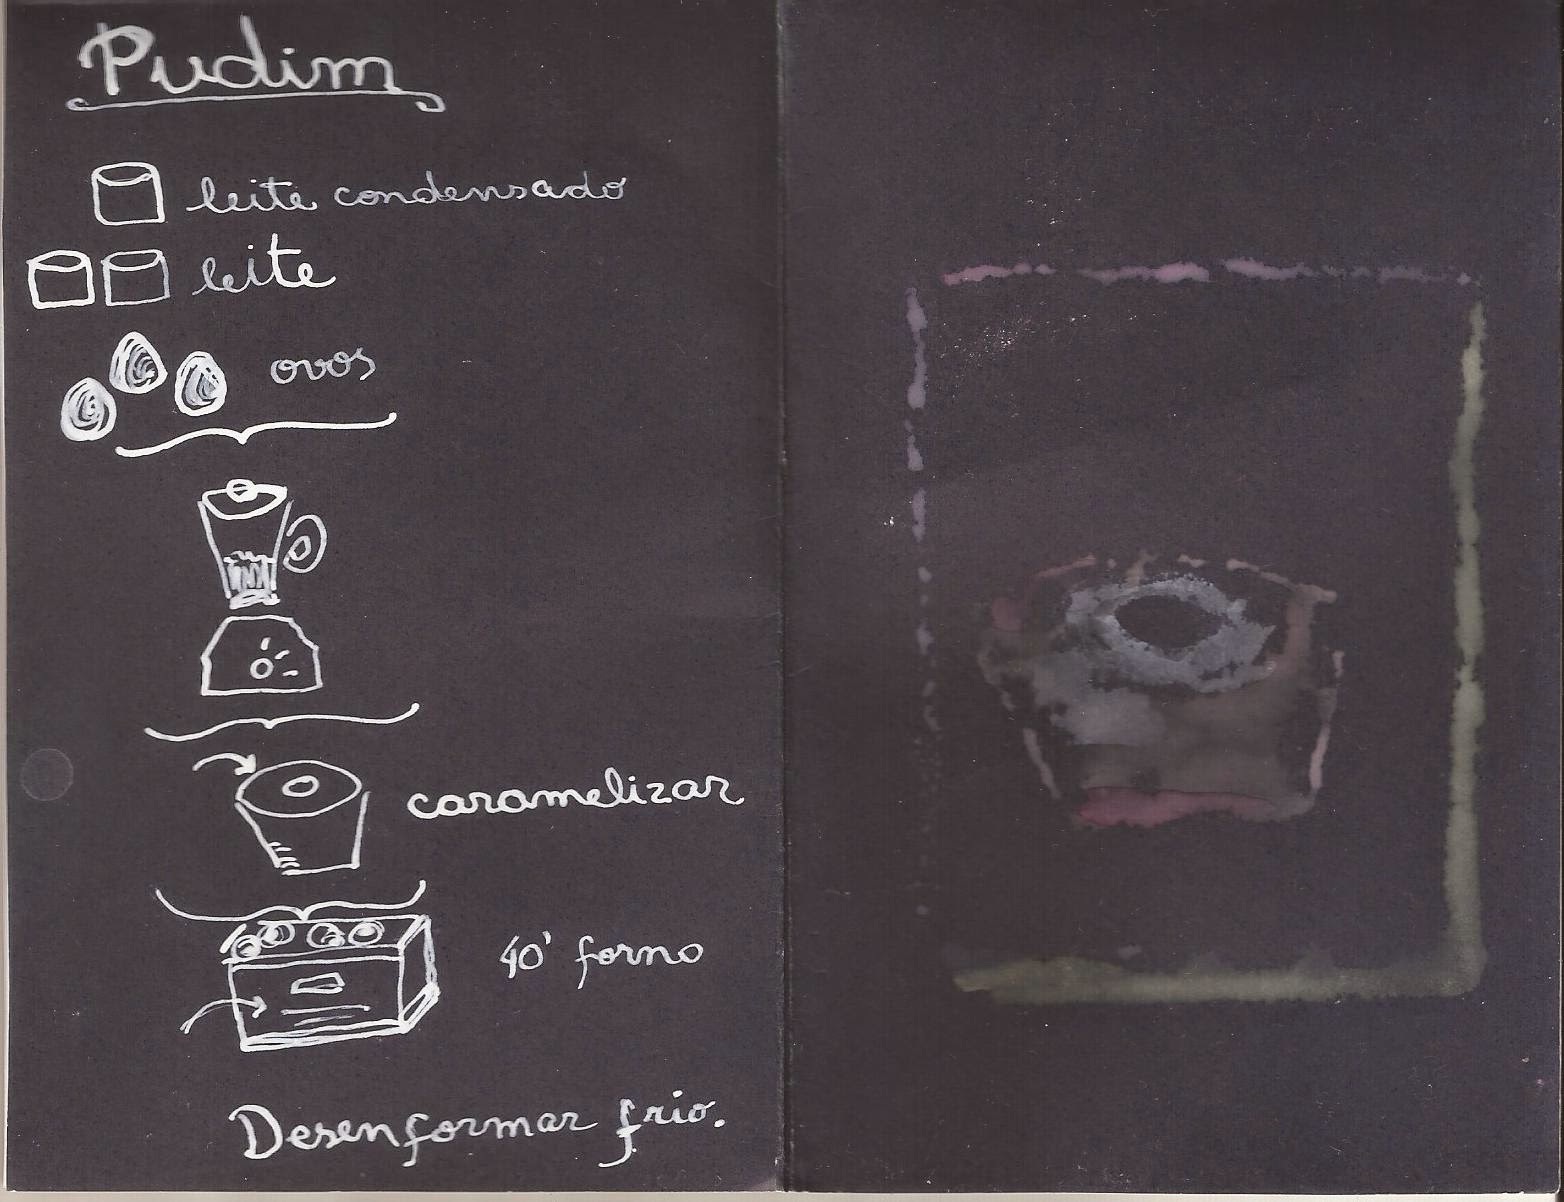 Pudim
leite condensado
leite
ovos
caramelizar
40' forno
Desenformar frio.